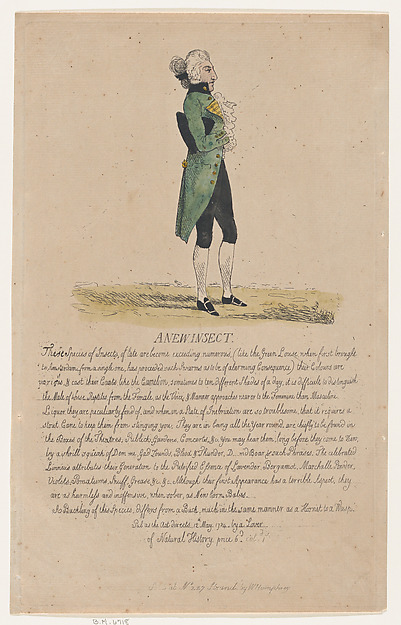 A NEW INSECT.
These Species of Insects, of late are become exceeding numerous, (like the Green Louse when first brought
to Amsterdam, from a single one, has proceeded such Swarms as to be of alarming Consequence) their Colours are
various & cast their Coats like the Camelion, sometimes to ten different Shades of a day, it is difficult to distinguish
the Male of these Reptiles from the Female, as the Voice & Manner approaches nearer to the Femenine than Masculine.
Liquor they are peculiarly fond of, and when in a State of Inebriation are so troublesome, that it requires a
stout Cane to keep them from stinging you; They are in being all the Year round, are chiefly to be found in
the Boxes of the Theatres, Publick Gardens, Concerts, &c. You may hear them long before they come to View,
by a shrill squeak of Dem me, Gad Zounds, Blood & Thunder, D__ mid Boar & such Phrases. The celebrated
Linnius attributes their Generation to the Putrified Essence of Lavender, Bergamot, Marshall Powder,
Violets, Pomatums, Snuff, Grease, &c. &c. Although their first Appearance has a terrible Aspect, they
are as harmless and inoffensive, when sober, as New born Babes.
A Buckling of this Species, differs from a Buck, much in the same manner as a Hornet is a Wasp.
Pub as the Act directs, 12th May, 1784, by a Lover
of Natural History, price 6d.
No. 227 Strand, by W. Humphrey
B.M. 6718